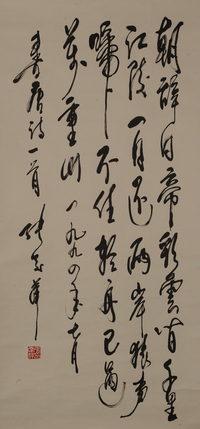 朝辭白帝彩雲间千里
江陵一日还两岸猿声
啼不住轻舟已過
萬重山一九九四年七月
書唐诗一首